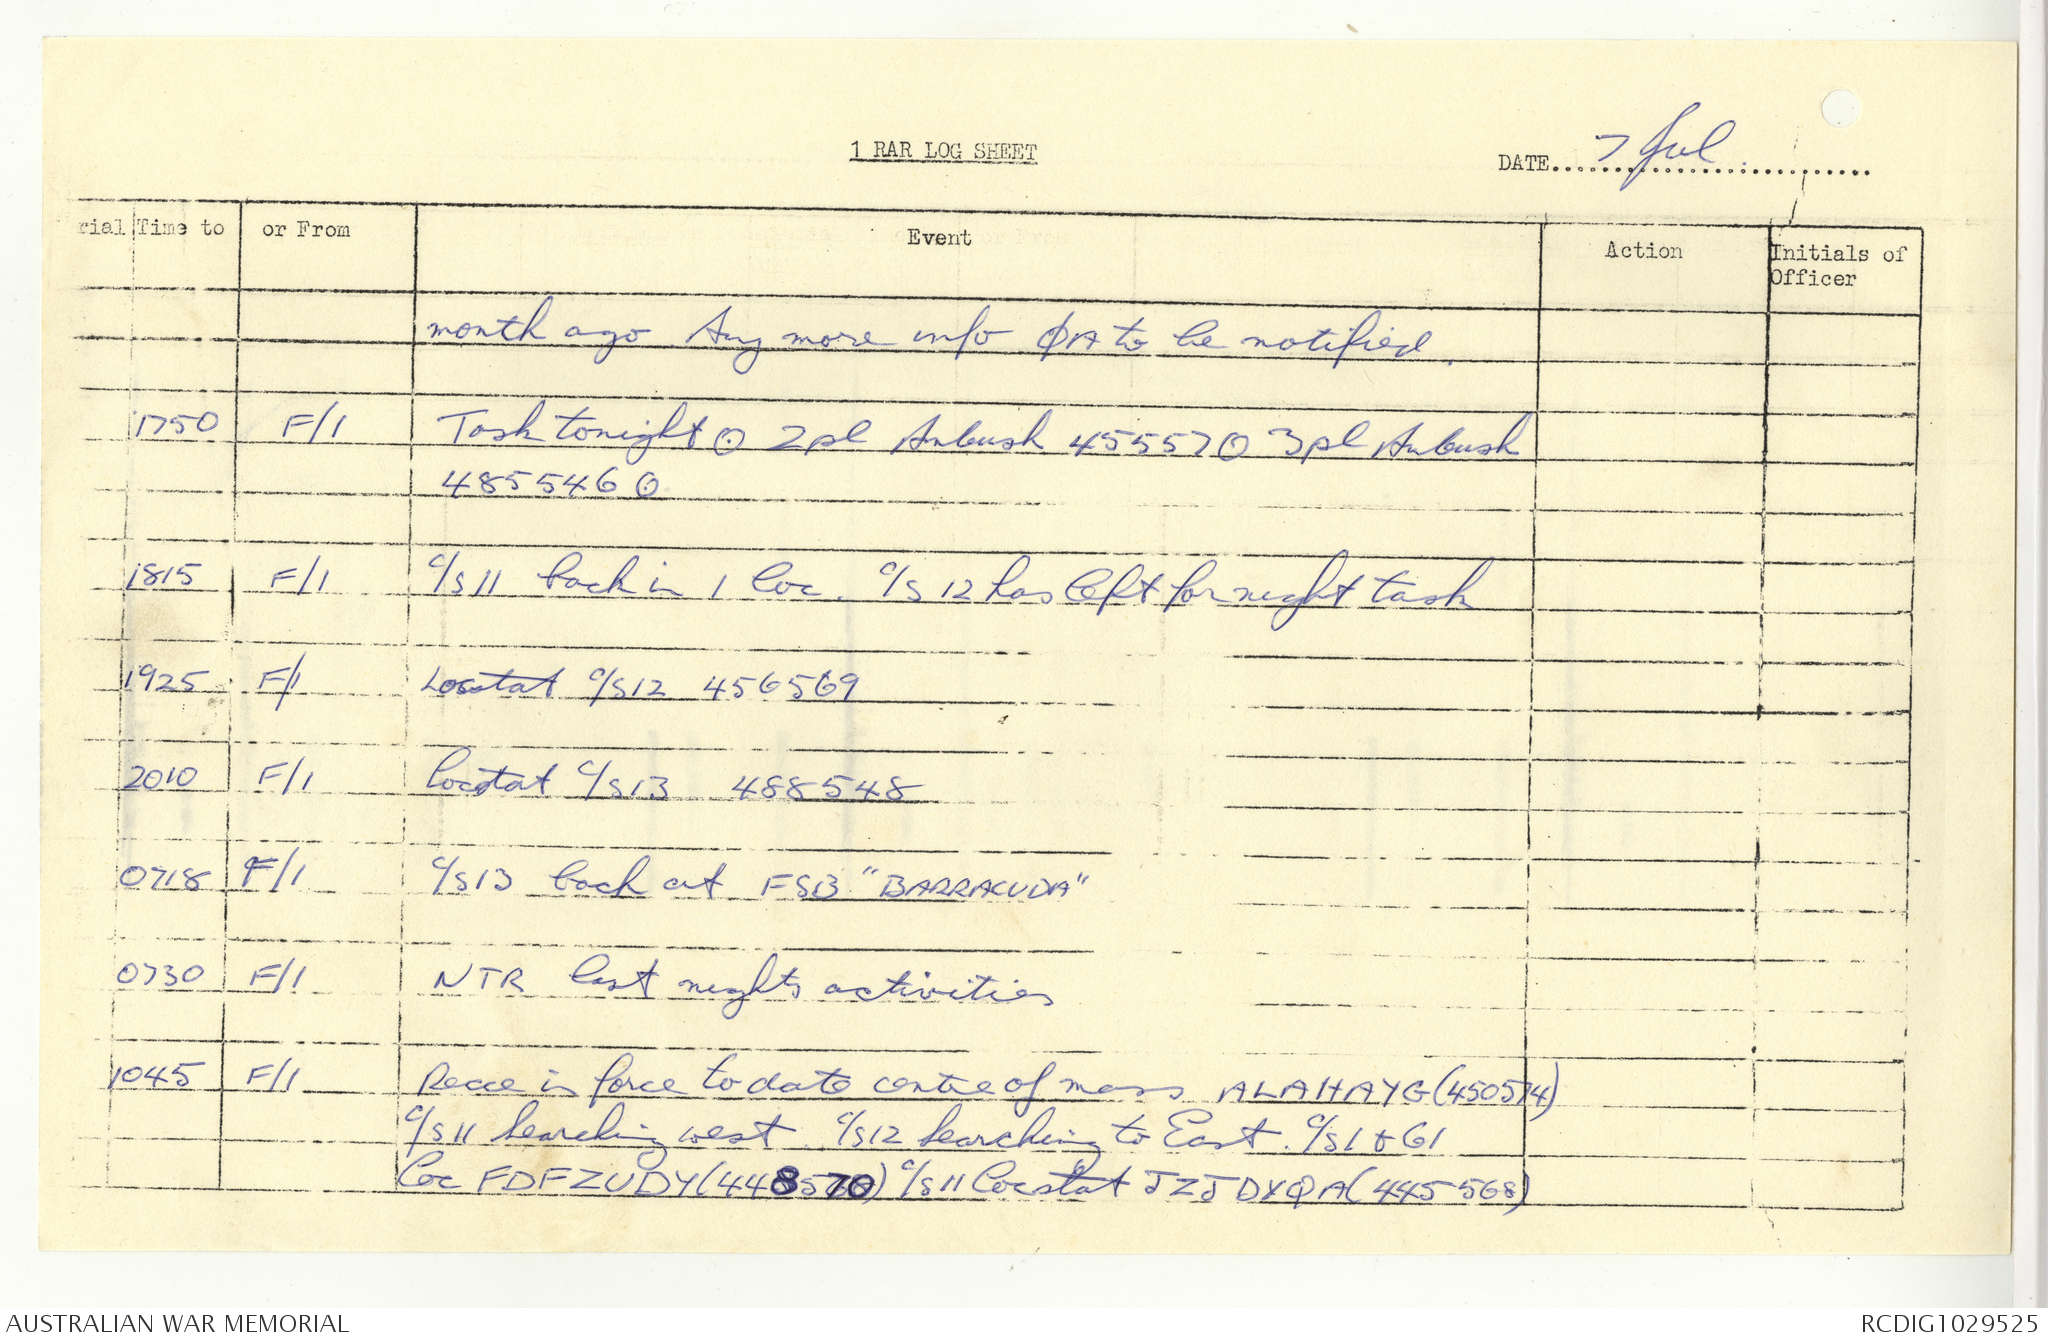 1 RAR LOG SHEET
DATE 7 Jul
rial Time to or From Event Action Initials of Officer
month ago Any more info QA to be notified.
1750 F/1 Task tonight ⊙ 2pl Ambush 45557⊙ 3pl Ambush
4855460 ⊙
1815 F/1 C/S 11 back in 1 loc. C/S 12 has left for night task
1925 F/1 Locstat C/S12 456569
2010 F/1 Locstat C/S13 488548
0718 F/1 C/S13 back at FSB "BARRACUDA"
0730 F/1 NTR last nights activities
1045 F/1 Recce in force to date centre of mass ALAHAYG (450574)
C/S 11 searching west. C/S12 searching to East. C/S1 & 61
loc FDFZUDY (448570) C/S 11 locstat JZJDXQA (445568)
AUSTRALIAN WAR MEMORIAL
RCDIG1029525